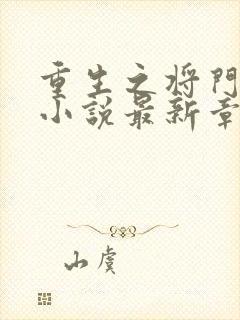 重生之将门
小说最新章
山虞